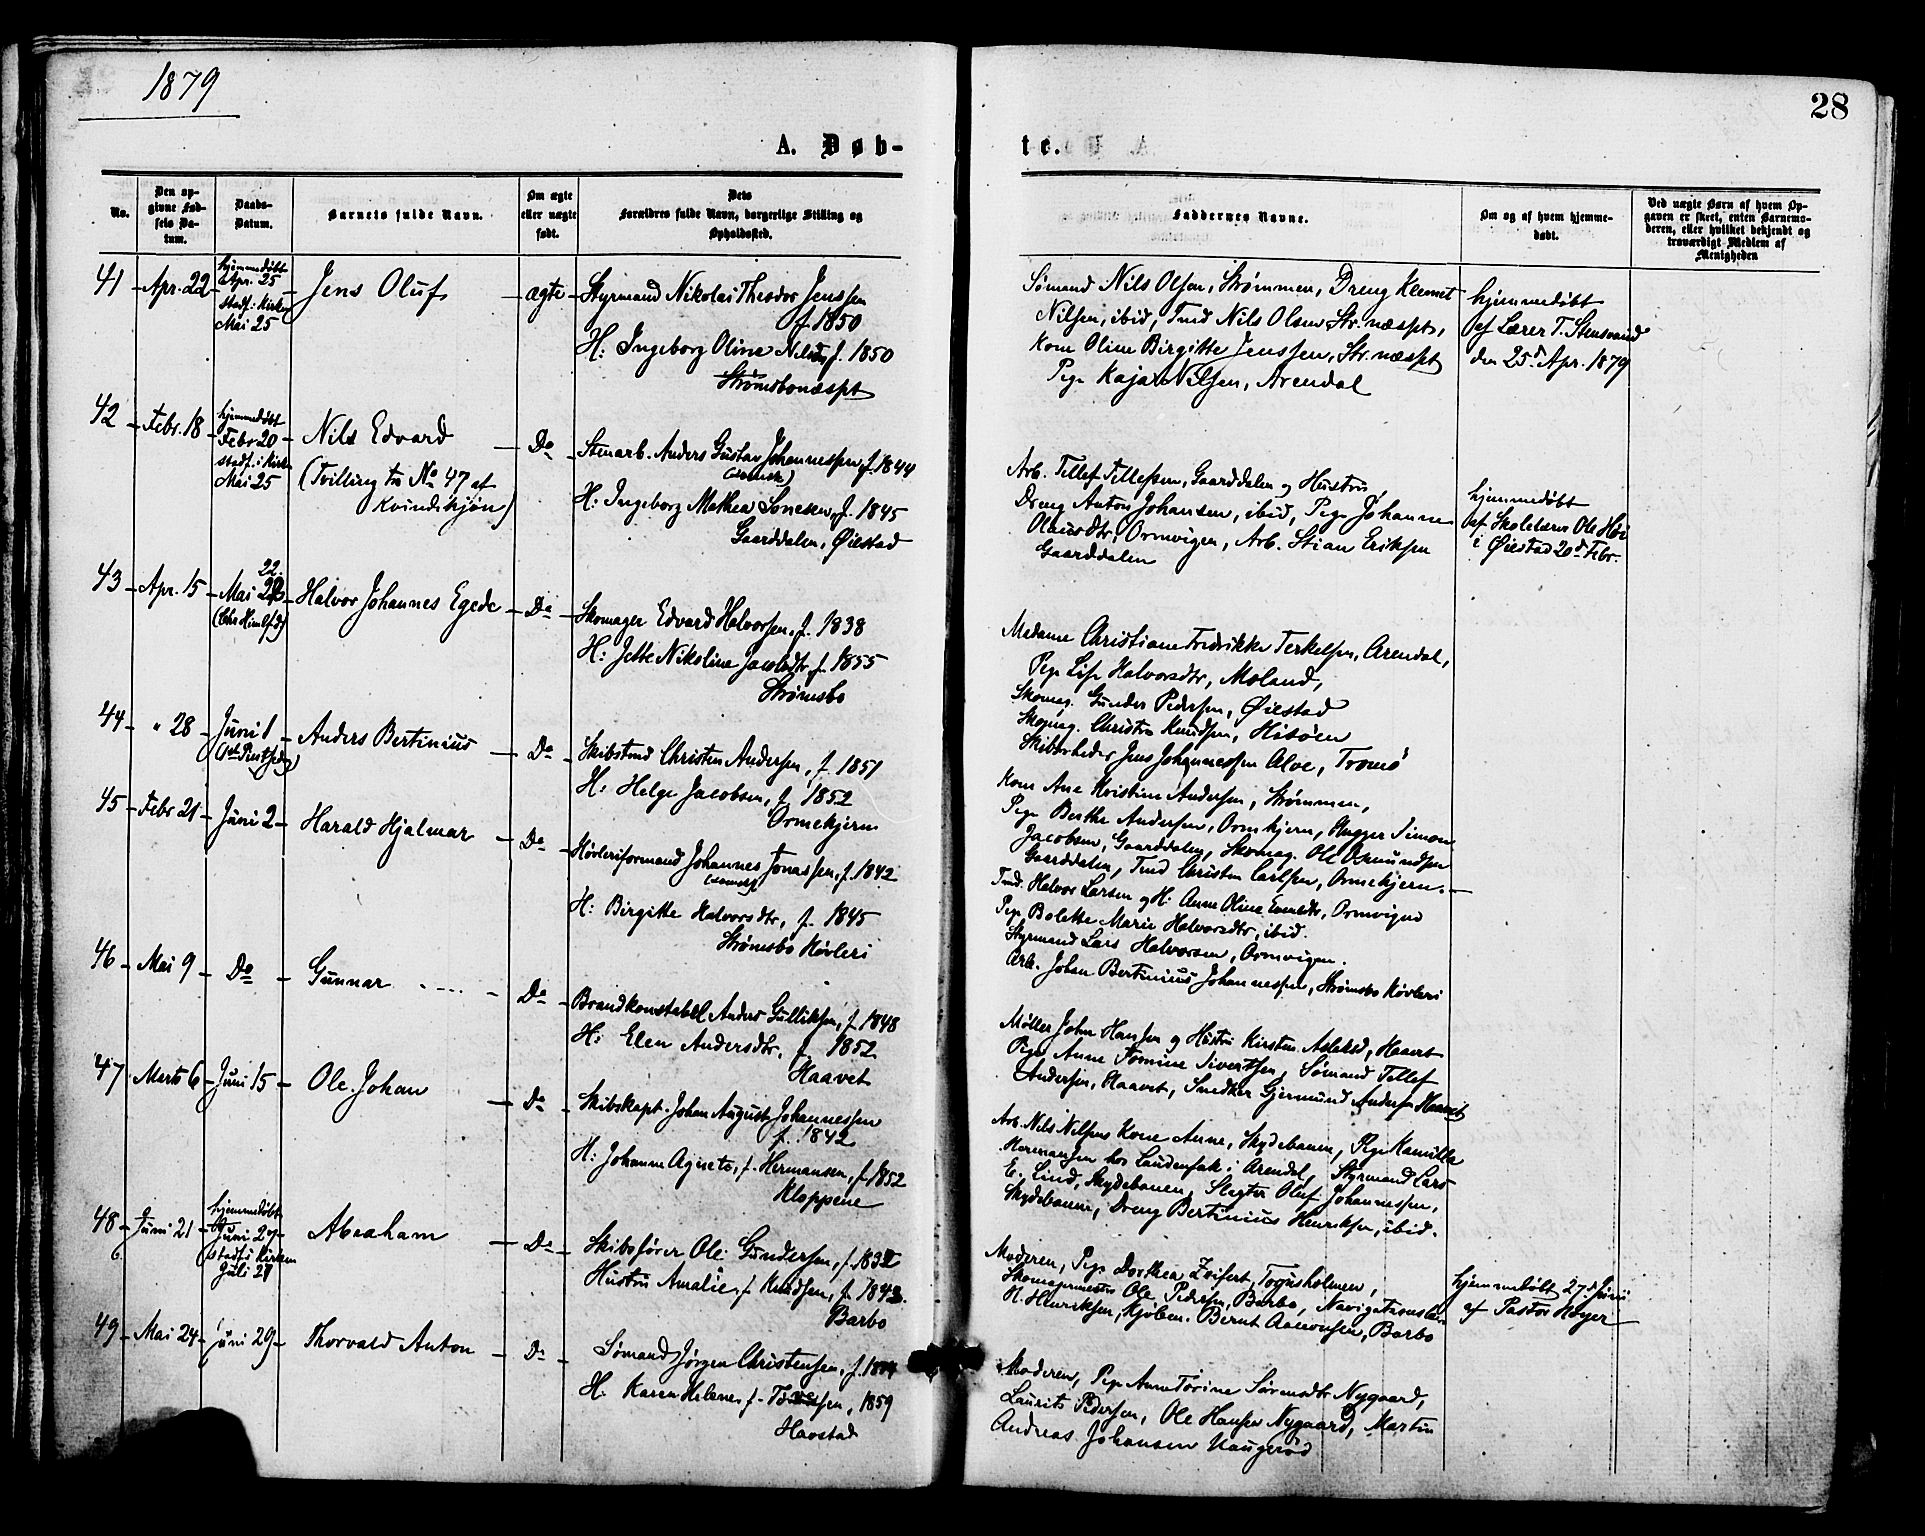 1879
28
A. Døb-
te.
No.
Den op-
givne Fød-
sels Da-
tum.
Daabs-
Datum.
Barnets fulde Navn.
Om ægte
eller uægte
født.
Dets
Forældres fulde Navn, borgerlige Stilling og
Opholdssted.
Faddernes Navne.
Om og af hvem hjemme-
døbt.
Ved uægte Børn af hvem Op-
gaven er skeet, enten Barnemo-
deren, eller hvilket bekjendt og
troværdigt Medlem af
Menigheden
41
Apr. 22
hjemmedøbt
Apr. 25
stadf. i Kirken
Mai 25
Jens Oluf
ægte
Styrmand Nikolai Theodor Jenssen
f. 1850
H: Ingeborg Oline Nilsen f. 1850
Strømsbonæsset
Sømand Nils Olsen, Strømmen, Dreng Klemet
Nilsen, ibid, Tmd Nils Olsen Str. næsset,
Kone Oline Birgitte Jenssen, Str. næsset
Pige Kaja Nilsen, Arendal
hjemmedøbt
af Lærer T. Stensvand
den 25d Apr. 1879
42
Febr. 18
hjemmedøbt
Febr 20
stadf. i Kirk
Mai 25
Nils Edvard
(Tvilling til No 47 af
Kvindekjøn)
Do
Stenarb. Anders Gustav Johannessen f. 1844
(svensk)
H: Ingeborg Mathea Sonesen f. 1845
Gaarddalen, Øiestad
Arb. Tellef Tellefsen, Gaarddalen og Hustru,
Dreng Anton Johansen, ibid, Pige Johanne
Olausdtr, Ormvigen, Arb. Stian Eriksen
Gaarddalen
hjemmedøbt
af Skolelærer Ole Hei
i Øiestad 20d Febr.
43
Apr. 15
22.
Mai
(Chr Himlfd)
Halvor Johannes Egede
Do
Skomager Edvard Halvorsen, f. 1838
H: Jette Nikoline Jacobsdtr f. 1855
Strømsbo
Madame Christiane Fredrikke Terkelsen, Arendal,
Pige Lise Halvorsdtr, Moland,
Skomag. Gunder Pedersen, Øiestad
Skomag. Christen Knudsen, Hisøen
Skibsrheder Jens Johannessen Alve, Tromø
44
" 28
Juni 1
(1st Pintsedg)
Anders Bertinius
Do
Skibstmd Christen Andersen, f. 1851
H: Helge Jacobsen, f. 1852
Ormekjern
Kone Ane Kristine Andersen, Strømmen,
Pige Berthe Andersen, Ormekjern, Hugger Simon
Jacobsen, Gaarddalen, Skomag. Ole Osmundsen
Gaarddalen, Tmd Christen Carlsen, Ormekjern.
45
Febr 21
Juni 2
Harald Hjalmar
Do
Høvleriformand Johannes Jonassen, f. 1842
(svensk)
H: Birgitte Halvorsdtr, f. 1845
Strømsbo Høvleri
Tmd. Halvor Larsen og H: Anne Oline Evensdtr, Ormvigen
Pige Bolette Marie Halvorsdtr, ibid.
Styrmand Lars Halvorsen, Ormvigen.
Arb. Johan Bertinius Johannessen, Strømsbo Høvleri
46
Mai 9
Do
Gunnar
Do
Brandkonstabel Anders Gulliksen, f. 1848
H: Elen Andersdtr, f. 1852
Haavet
Møller John Hansen og Hustru Kirsten Aslaksd, Haavet
Pige Anne Tomine Sivertsen, Sømand Tellef
Andersen, Haavet, Snedker Gjermund Andersen Haavet
47
Marts 6
Juni 15
Ole Johan
Do
Skibskapt. Johan August Johannessen
f. 1842
H: Johanne Agnete, f. Hermansen, f. 1852
Kloppene
Arb. Nils Nilsens Kone Anne, Skydebanen, Pige Kamilla
Hermansen hos Laudenfak i Arendal, Styrmand Lars
E. Lind, Skydebanen, Slagter Oluf Johannessen,
Skydebanen, Dreng Bertinius Henriksen, ibid.
48
Juni 21
hjemmedøbt
Juni 27
stadf. i Kirken
Juli 27
Abraham
Do
Skibsfører Ole Gundersen, f. 1832
Hustru Amalie, f. Knudsen, f. 1843.
Barbo
Moderen, Pige Dorthea Zeifert, Tognsholmen,
Skomagermester Ole Pedersen, Barbo, Navigationslærer
H. Henriksen, Kjøbm. Bernt Aanonsen, Barbo
hjemmedøbt 27.d Juni
af Pastor Høyer
49
Mai 24
Juni 29
Thorvald Anton
Do
Sømand Jørgen Christensen, f.
H: Karen Helene, f. 1859
Havstad
Moderen, Pige Anne Torine Sørensdtr Nygaard,
Laurits Pedersen, Ole Hansen Nygaard, Martin
Andreas Johansen Haugerød